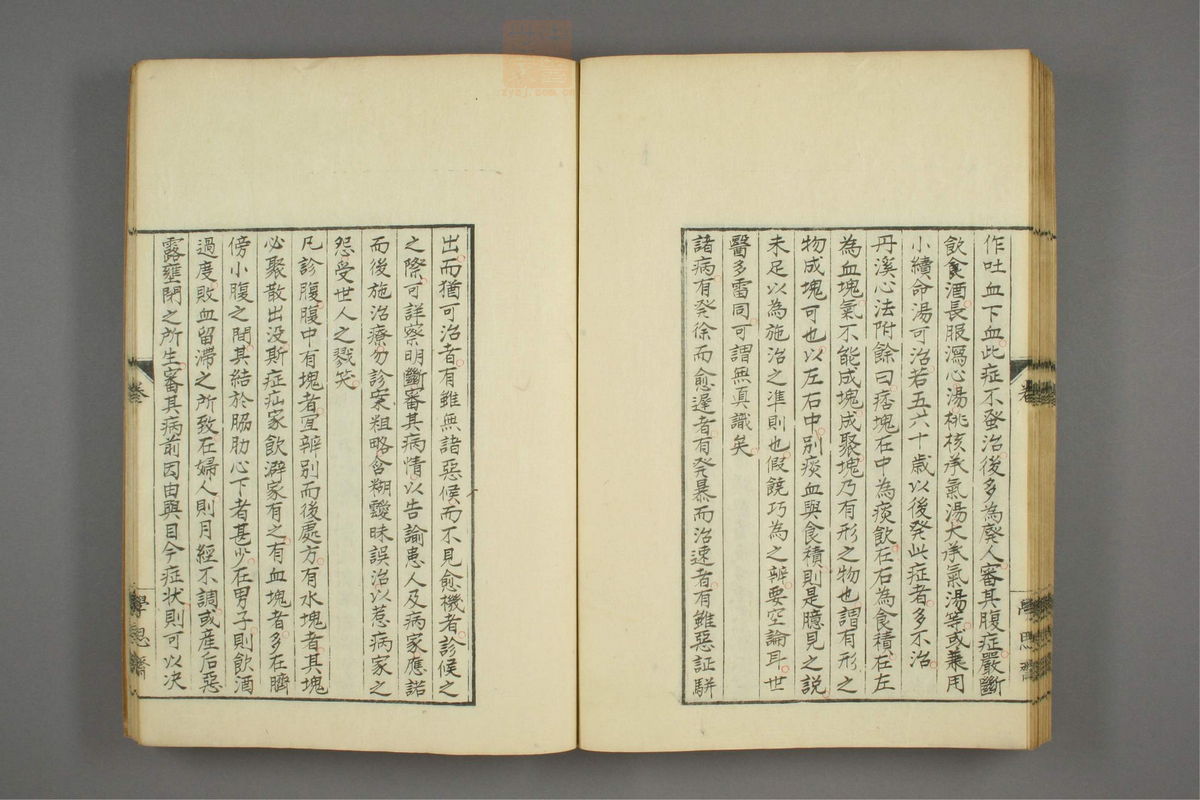 作吐血下血此症不蚤治後多為廢人審其腹症嚴斷
飲食酒長服瀉心湯桃核承氣湯大承氣湯等或兼用
小續命湯可治若五六十歲以後發此症者多不治
丹溪心法附餘曰痞塊在中為痰飲在右為食積在左
為血塊氣不能成塊成聚塊乃有形之物也謂有形之
物成塊可也以左右中別痰血與食積則是臆見之説
未足以為施治之準則也假饒巧為之辨要空論耳世
醫多雷同可謂無真識矣
諸病有發徐而愈遲者有發暴而治速者有雖惡証駢
出而猶可治者有雖無諸惡候而不見愈機者診候之
之際可詳察明斷審其病情以告諭患人及病家應諾
而後施治療勿診案粗略含糊靉昧誤治以惹病家之
怨受世人之戮笑
凡診腹腹中有塊者宜辨別而後處方有水塊者其塊
必聚散出没斯症疝家飲澼家有之有血塊者多在臍
傍小腹之間其結於脇肋心下者甚少在男子則飲酒
過度敗血留滯之所致在婦人則月經不調或産后惡
露壅閉之所生審其病前因由與目今症状則可以决
學思齋